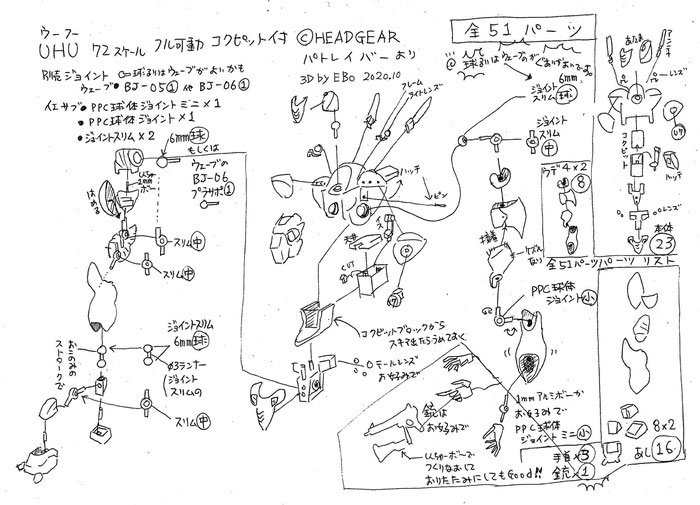 ウーフー
UHU 72スケール フル可動 コクピット付 ©HEADGEAR
パトレイバーより
3D by EBO 2020.10
別売ジョイント 球もしくはウェーブがよいかも
ウェーブ・BJ-05① 他 BJ-06①
イエサブ・PPC球体ジョイントミニ×1
・PPC球体ジョイント×1
・ジョイントスリム×2
6mm球
もしくは
ウェーブの
BJ-06
プラサポ①
はめる
スリム中
スリム中
ジョイントスリム
6mm球
Φ3ランナー
(ジョイント
スリムの
お好みの
ストロークで
スリム中
フレーム
ライトレンズ
ハッチ
ピン
イス
天井
CUT
コクピットブロックから
スキマ出たらうめておく
テールレンズ
お好みで
銃は
お好みで
しんちゅーボーで
つくりなおして
おりたたみにしてもGood!!
全51パーツ
6mm
ジョイント
スリム球
ジョイント
スリム中
接着
ケズル
PPC球体
ジョイント小
1mmアルミボーか
お好みで
PPC球体
ジョイントミニ小
手首×3
銃×1
ウデ4×2
8
あたま
アンテナ
レンズ
コクピット
ハッチ
レンズ
本体
23
全51パーツパーツリスト
8×2
あし16